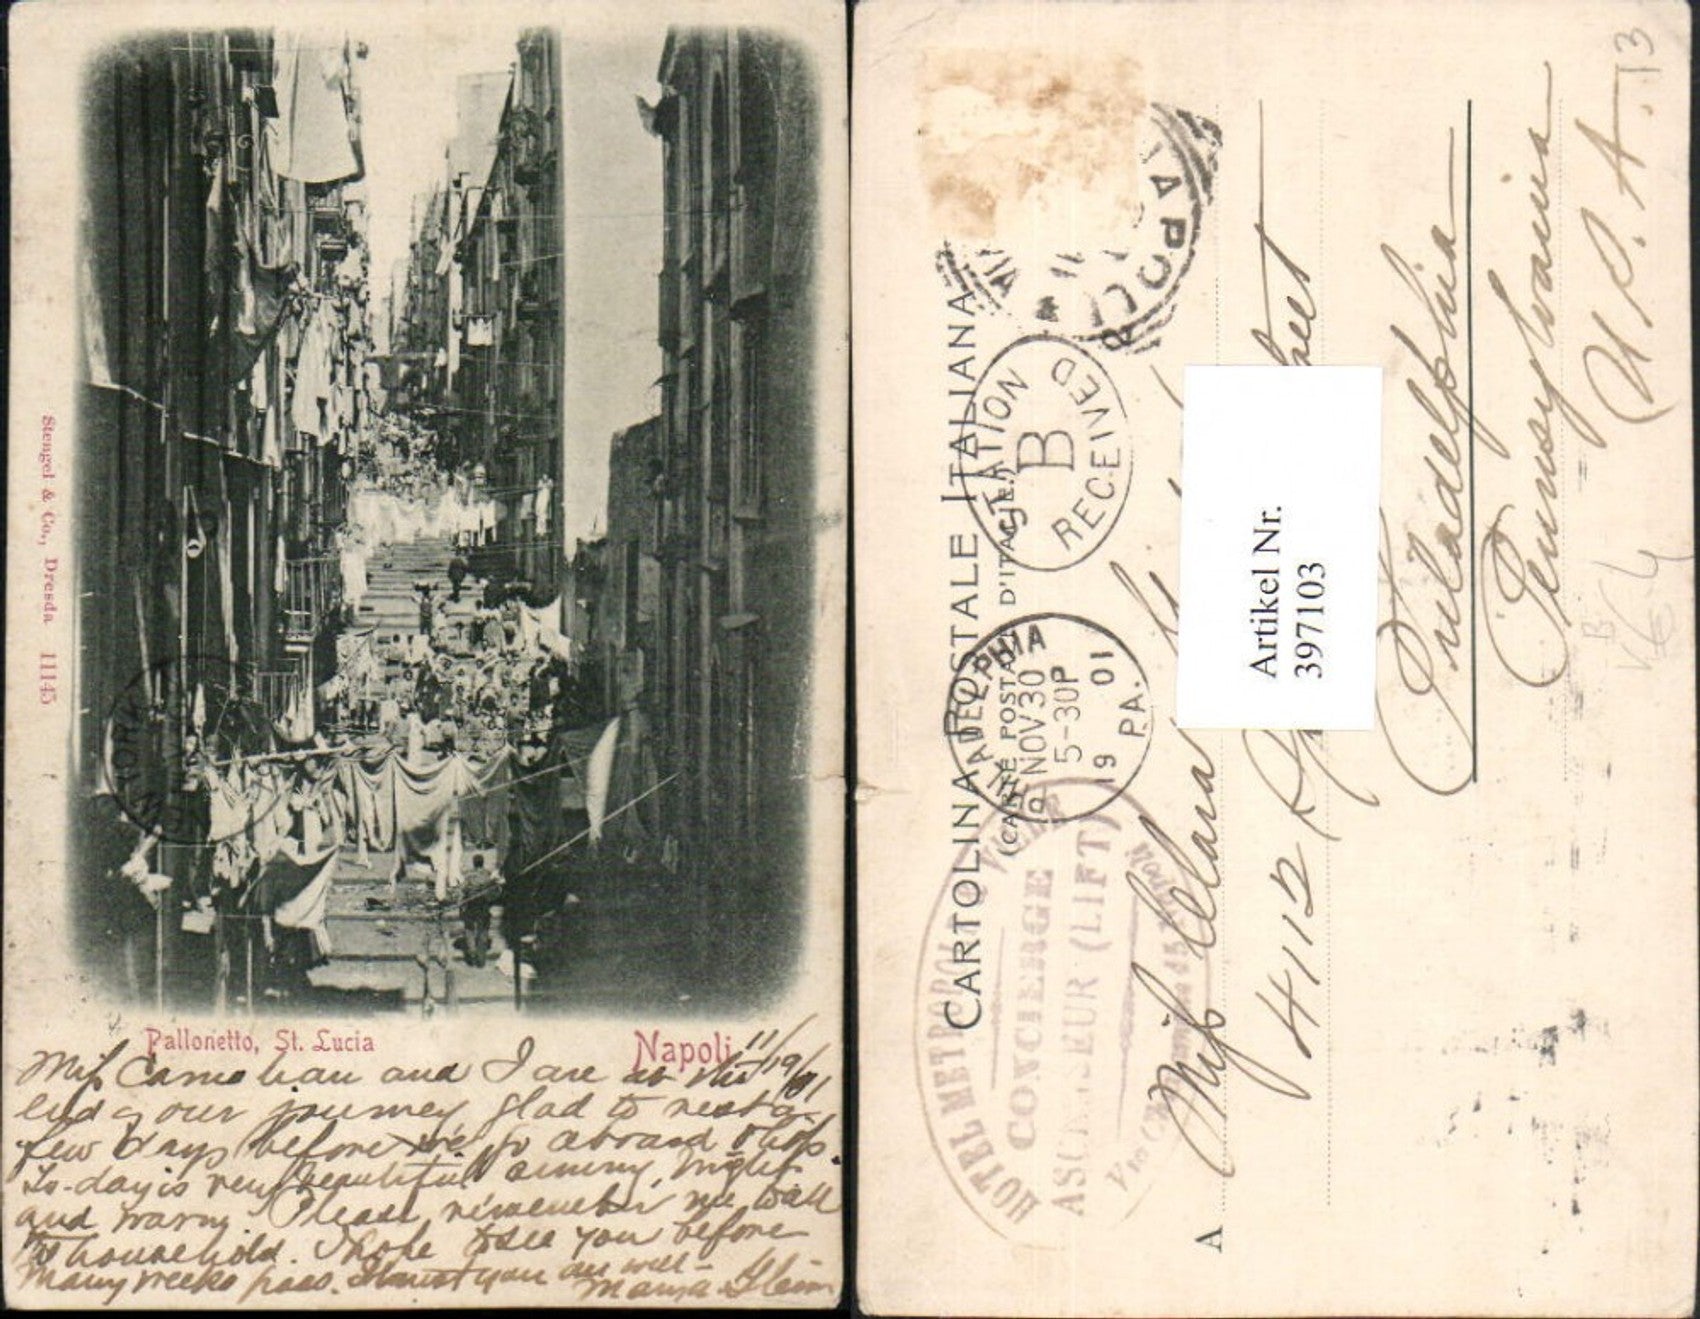 Stengel & Co., Dresda 11145
Pallonetto, St. Lucia
Napoli
11/19/01
Miss and I are at the
end of our journey glad to rest a
few days before we go aboard ship.
To-day is very beautiful sunny, bright
and warm. Please, remember me to all
household. I hope to see you before
many weeks pass. I trust you are well-
NEW YORK
CARTOLINA POSTALE ITALIANA
(CARTE POSTALE D'ITALIE)
NAPOLI
STATION
B
RECEIVED
PHILADELPHIA
NOV 30
5-30P
19 01
PA.
HOTEL METROPOLE
CONCIERGE
ASCENSEUR (LIFT)
A
Miss Clara
4112
Philadelphia
Pennsylvania
U. S. A.
13
Artikel Nr.
397103